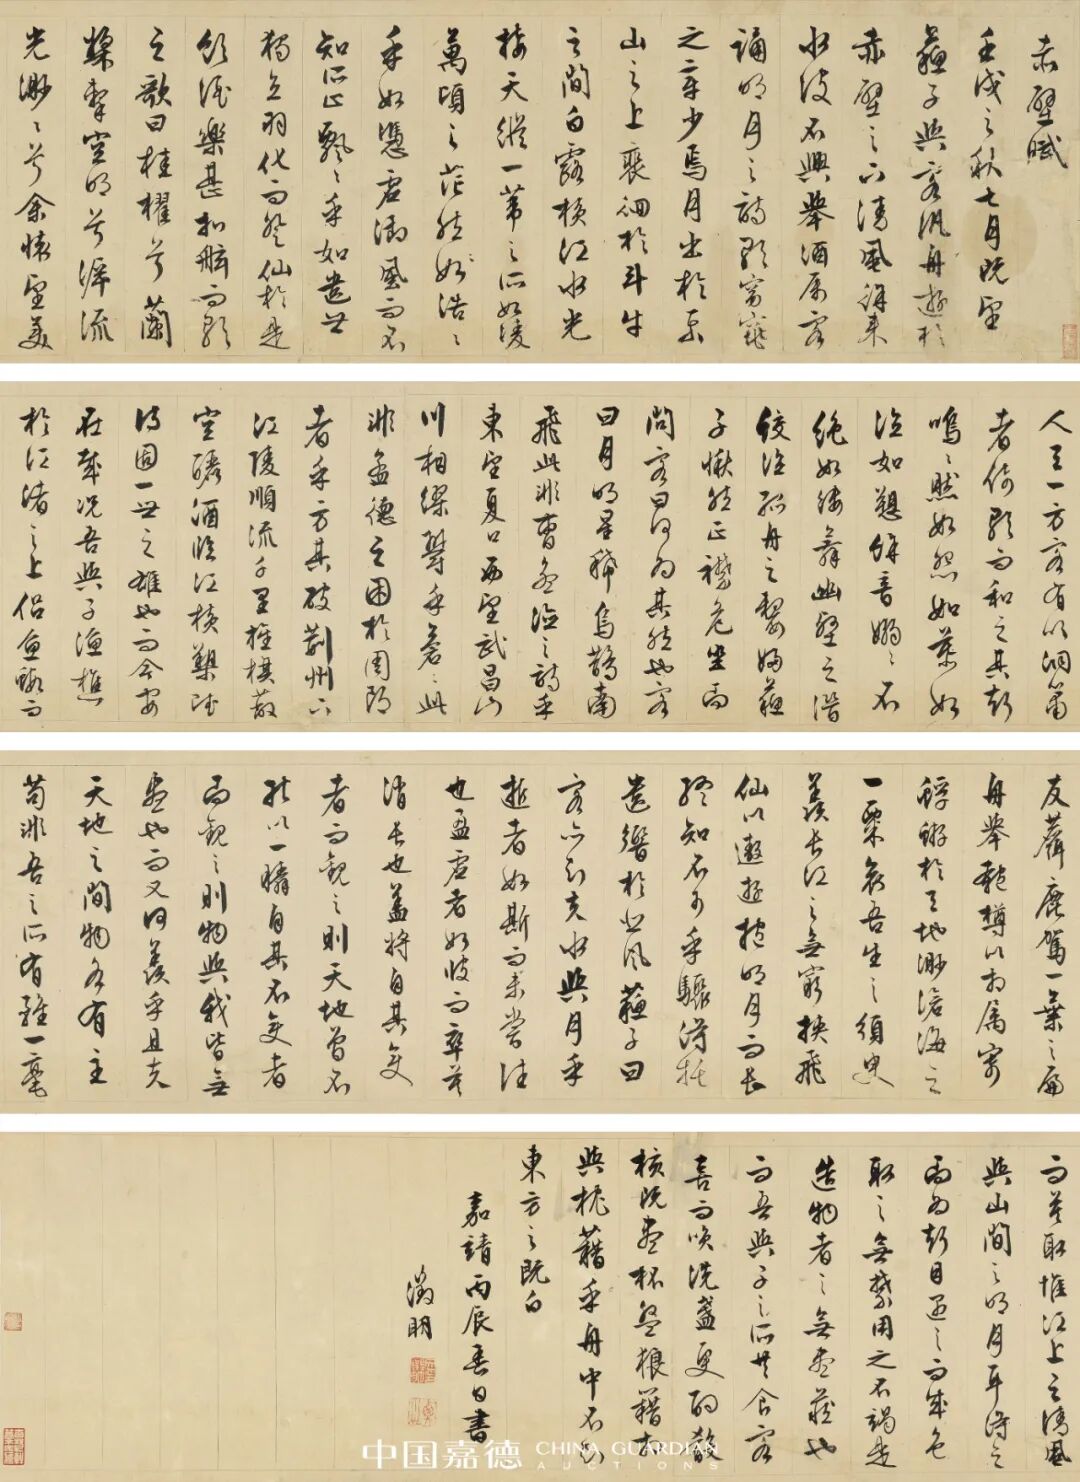 赤壁賦
壬戌之秋七月既望
蘇子與客汎舟遊於
赤壁之下清風徐來
水波不興舉酒属客
誦明月之詩歌窈窕
之章少焉月出於東
山之上裴徊於斗牛
之間白露橫江水光
接天縱一葦之所如凌
萬頃之茫然浩〻
乎如憑虛御風而不
知所止飄〻乎如遺世
獨立羽化而登仙於是
飲酒樂甚扣舷而歌
之歌曰桂櫂兮蘭
槳擊空明兮泝流
光渺〻兮余懷望美
人天一方客有吹洞簫
者倚歌而和之其聲
嗚〻然如怨如慕如
泣如愬餘音嫋〻不
絕如縷舞幽壑之潛
蛟泣孤舟之嫠婦蘇
子愀然正襟危坐而
問客曰何為其然也客
曰月明星稀烏鵲南
飛此非曹孟德之詩乎
東望夏口西望武昌山
川相繆鬱乎蒼〻此
非孟德之困於周郎
者乎方其破荊州下
江陵順流千里旌旗蔽
空釃酒臨江橫槊賦
詩固一世之雄也而今安
在哉况吾與子漁樵
於江渚之上侶魚蝦而
友麋鹿駕一葉之扁
舟舉匏樽以相属寄
蜉蝣於天地渺滄海之
一粟哀吾生之須臾
羨長江之無窮挾飛
仙以遨遊抱明月而長
終知不可乎驟得托
遺響於悲風蘇子曰
客亦知夫水與月乎
逝者如斯而未嘗往
也盈虛者如彼而卒莫
消長也蓋將自其變
者而觀之則天地曾不
能以一瞬自其不變者
而觀之則物與我皆無
盡也而又何羨乎且夫
天地之間物各有主
苟非吾之所有雖一毫
而莫取惟江上之清風
與山間之明月耳得之
而為聲目遇之而成色
取之無禁用之不竭是
造物者之無盡藏也
而吾與子之所共食客
喜而笑洗盞更酌殽
核既盡杯盤狼籍相
與枕藉乎舟中不知
東方之既白
嘉靖丙辰春日書
徵明
中国嘉德 CHINA GUARDIAN AUCTIONS